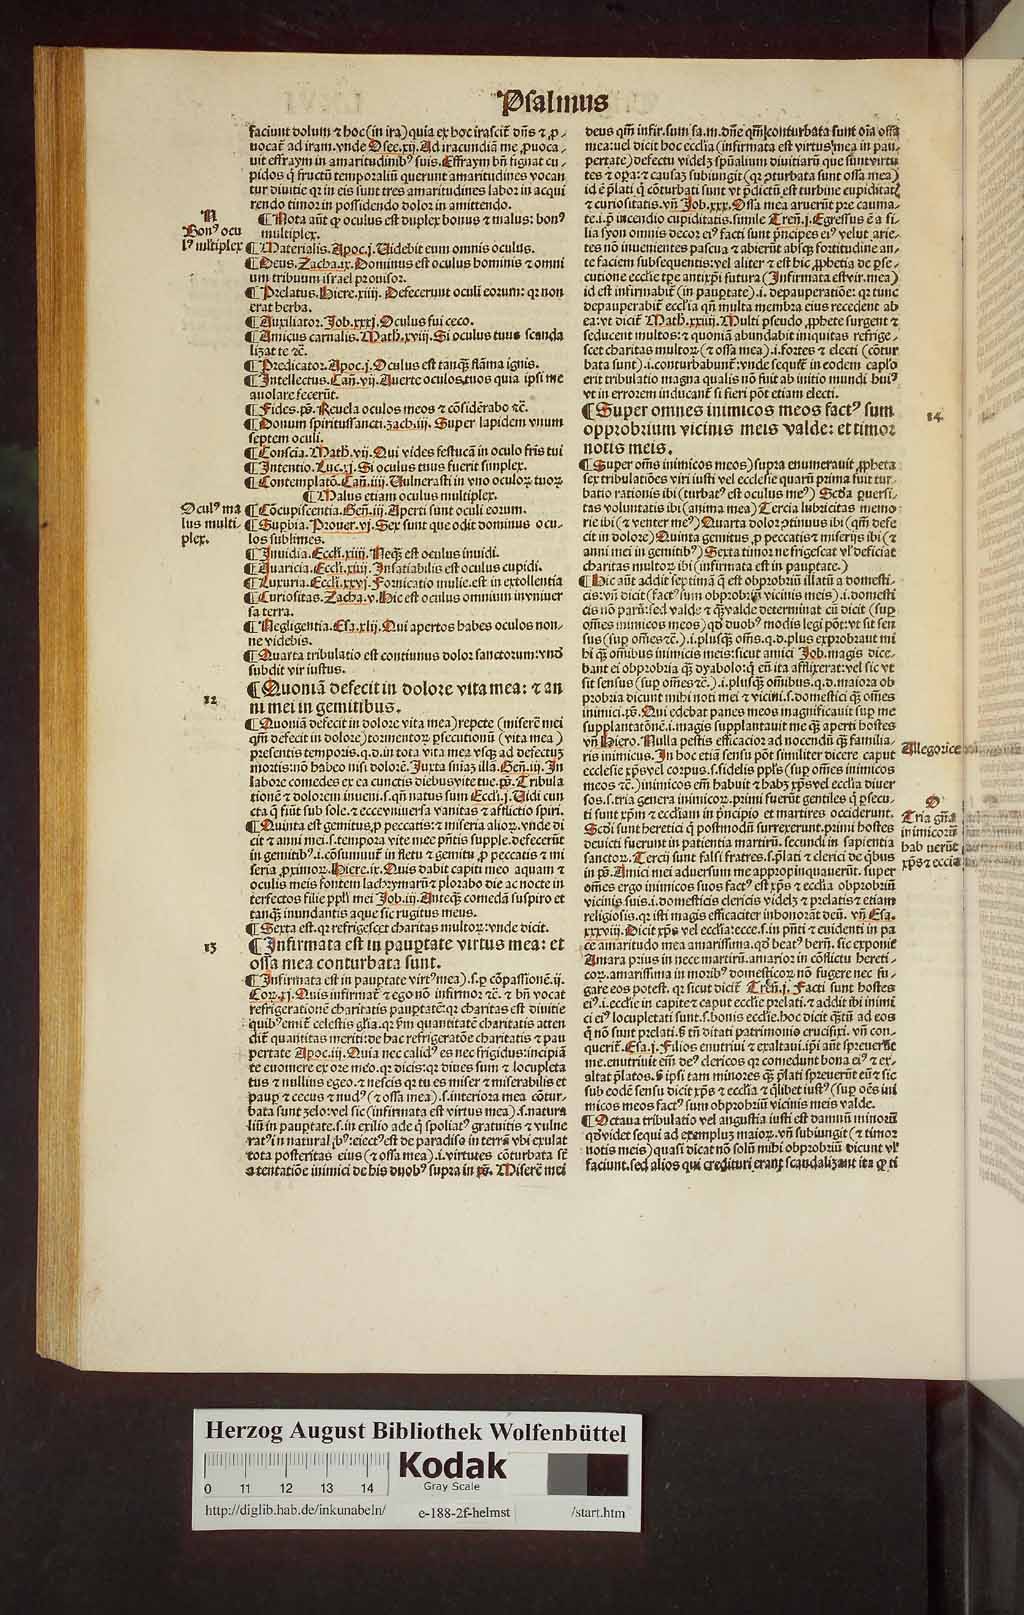 Psalmus
faciunt dolum ⁊ hoc (in ira) quia ex hoc irascit̃ dñs ⁊ ꝓ-
uocat̃ ad iram. vnde Osee. xij. Ad iracundiã me ꝓuoca-
uit effraym in amaritudinibꝰ suis. Effraym bñ signat cu-
pidos q̃ fructũ temporaliũ querunt amaritudines vocan
tur diuitie qꝛ in eis sunt tres amaritudines labor in acqui
rendo timor in possidendo dolor in amittendo.
N
Bonꝰ ocu
lꝰ multiplex
¶ Nota aũt ꝙ oculus est duplex bonus ⁊ malus: bonꝰ
multiplex.
¶ Materialis. Apoc. j. Uidebit eum omnis oculus.
¶ Deus. Zacha. ix. Dominus est oculus hominis ⁊ omni
um tribuum israel prouisor.
¶ Prelatus. Hiere. xiiij. Defecerunt oculi eorum: qꝛ non
erat herba.
¶ Auxiliator. Job. xxxj. Oculus fui ceco.
¶ Amicus carnalis. Math. xviij. Si oculus tuus scanda
lizat te ⁊c̃.
¶ Predicator. Apoc. j. Oculus est tanqȝ flãma ignis.
¶ Intellectus. Cañ. vij. Auerte oculos tuos quia ipsi me
auolare fecerũt.
¶ Fides. ps̃. Reuela oculos meos ⁊ cõsiderabo ⁊c̃.
¶ Donum spiritussancti. zach. iij. Super lapidem vnum
septem oculi.
¶ Conscia. Math. vij. Qui vides festucã in oculo fris tui
¶ Intentio. Luc. xj. Si oculus tuus fuerit simplex.
¶ Contemplatõ. Cañ. iiij. Uulnerasti in vno oculoꝝ tuoꝝ
¶ Malus etiam oculus multiplex.
Oculꝰ ma
lus multi-
plex.
¶ Cõcupiscentia. Geñ. iij. Aperti sunt oculi eorum.
¶ Supbia. Prouer. vj. Sex sunt que odit dominus ocu-
los sublimes.
¶ Inuidia. Eccłi. xiiij. Neqȝ est oculus inuidi.
¶ Auaricia. Eccłi. xiiij. Insatiabilis est oculus cupidi.
¶ Luxuria. Eccłi. xxvj. Fornicatio mulie. est in extollentia
¶ Curiositas. Zacha. v. Hic est oculus omnium in vniuer
sa terra.
¶ Negligentia. Esa. xlij. Qui apertos habes oculos non-
ne videbis.
¶ Quarta tribulatio est continuus dolor sanctorum: vnd
subdit vir iustus.
12
¶ Quoniã defecit in dolore vita mea: ⁊ an
ni mei in gemitibus.
¶ Quoniã defecit in dolore vita mea) repete (miserẽ mei
qm̃ defecit in dolore) tormentoꝝ ꝑsecutionũ (vita mea)
presentis temporis. q. d. in tota vita mea vsqȝ ad defectuȝ
mortis: nõ habeo nisi dolorẽ. Juxta sniaȝ illã. Geñ. iij. In
labore comedes ex ea cunctis diebus vite tue. ps̃. Tribula
tionẽ ⁊ dolorem inueni. s. qñ natus sum Eccłi. j. Uidi cun
cta q̃ fiũt sub sole. ⁊ ecce vniuersa vanitas ⁊ afflictio spiri.
¶ Quinta est gemitus, ꝓ peccatis: ⁊ miseria alioꝝ. vnde di
cit ⁊ anni mei. s. tempora vite mee pñtis supple. defecerũt
in gemitibꝰ. i. cõsumunt̃ in fletu ⁊ gemitu ꝓ peccatis ⁊ mi
seria ꝓximoꝝ. Hiere. ix. Quis dabit capiti meo aquam ⁊
oculis meis fontem lachrymarũ ⁊ plorabo die ac nocte in
terfectos filie ppłi mei Job. iij. Anteqȝ comedã suspiro et
tanqȝ inundantis aque sic rugitus meus.
¶ Sexta est. qꝛ refrigescet charitas multoꝝ: vnde dicit.
13
¶ Infirmata est in pauꝑtate virtus mea: et
ossa mea conturbata sunt.
¶ Infirmata est in pauꝑtate virtꝰ mea). s. ꝑ cõpassionẽ. ij.
Coꝝ. xj. Quis infirmat̃ ⁊ ego nõ infirmor ⁊c̃. ⁊ bñ vocat
refrigerationẽ charitatis pauꝑtatẽ: qꝛ charitas est diuitie
quibꝰ emit̃ celestis głia. qꝛ ẜm quantitatẽ charitatis atten
dit̃ quantitas meriti: de hac refrigeratõe charitatis ⁊ pau
pertate Apoc. iij. Quia nec calidꝰ es nec frigidus: incipiã
te euomere ex ore meo. qꝛ dicis: qꝛ diues sum ⁊ locupleta
tus ⁊ nullius egeo. ⁊ nescis qꝛ tu es miser ⁊ miserabilis et
pauꝑ ⁊ cecus ⁊ nudꝰ (⁊ ossa mea). s. interiora mea cõtur-
bata sunt zelo: vel sic (infirmata est virtus mea). s. natura
liũ in pauꝑtate. s. in exilio ade q̃ spoliatꝰ gratuitis ⁊ vulne
ratꝰ in naturalibꝰ: eiectꝰ est de paradiso in terrã vbi exulat
tota posteritas eius (⁊ ossa mea). i. virtutes cõturbata sũt
a tentatiõe inimici de his duobꝰ supra in ps̃. Miserẽ mei
deus qm̃ infir. sum sa. m. dñe qm̃ conturbata sunt oĩa ossa
mea: vel dicit hoc ecclĩa (infirmata est virtus mea in pau-
pertate) defectu videlȝ spũalium diuitiarũ que sunt virtu
tes ⁊ oꝑa: ⁊ causaȝ subiungit (qꝛ ꝯturbata sunt ossa mea)
id ẽ p̃lati q̃ cõturbati sunt vt p̃dictũ est turbine cupiditat
⁊ curiositatis. vñ Job. xxx. Ossa mea aruerũt pre cauma-
te. i. p̃ incendio cupiditatis. simile Treñ. j. Egressus ẽ a fi-
lia syon omnis decor eiꝰ facti sunt p̃ncipes eiꝰ velut arie-
tes nõ inuenientes pascua ⁊ abierũt absqȝ fortitudine an-
te faciem subsequentis: vel aliter ⁊ est hic ꝓphetia de ꝑse-
cutione ecclie tp̃e antixp̃i futura (Infirmata est vir. mea)
id est infirmabit̃ (in pauꝑtate). i. depauperatiõe: qꝛ tunc
depauperabit̃ ecclĩa qñ multa membra eius recedent ab
ea: vt dicit̃ Math. xxiiij. Multi pseudo ꝓphete surgent ⁊
seducent multos: ⁊ quoniã abundabit iniquitas refrige-
scet charitas multoꝝ (⁊ ossa mea). i. fortes ⁊ electi (cõtur
bata sunt). i. conturbabunt̃: vnde sequit̃ in eodem capło
erit tribulatio magna qualis nõ fuit ab initio mundi huiꝰ
vt in errorem inducant̃ si fieri põt etiam electi.
14
¶ Super omnes inimicos meos factꝰ sum
opprobrium vicinis meis valde: et timor
notis meis.
¶ Super om̃s inimicos meos) supra enumerauit ꝓpheta
sex tribulatiões viri iusti vel ecclesie quarũ prima fuit tur-
batio rationis ibi (turbatꝰ est oculus meꝰ) Scđa ꝑuersi-
tas voluntatis ibi (anima mea) Tercia lubricitas memo
rie ibi (⁊ venter meꝰ) Quarta dolor ꝯtinuus ibi (qm̃ defe
cit in dolore) Quinta gemitus, ꝓ peccatis ⁊ miserijs ibi (⁊
anni mei in gemitibꝰ) Sexta timor ne frigescat vł deficiat
charitas multoꝝ ibi (infirmata est in pauꝑtate.)
¶ Hic aũt addit septimã q̃ est obprobriũ illatũ a domesti-
cis: vñ dicit (factꝰ sum obprobriũ vicinis meis). i. domesti
cis nõ parũ: sed valde ⁊ qȝ valde determinat cũ dicit (suꝑ
om̃es inimicos meos) qđ duobꝰ modis legi põt: vt sit sen
sus (suꝑ om̃es ⁊c̃.). i. plusqȝ om̃s. q. d. plus exprobraut mi
hi qȝ om̃ibus inimicis meis: sicut amici Job. magis dice-
bant ei obprobria qȝ dyabolo: q̃ eũ ita afflixerat: vel sic vt
sit sensus (suꝑ om̃es ⁊c̃.). i. plusqȝ om̃ibus. q. d. maiora ob
probria dicunt mihi noti mei ⁊ vicini. s. domestici qȝ om̃es
inimici. ps̃. Qui edebat panes meos magnificauit sup me
supplantatõnẽ. i. magis supplantauit me qȝ aperti hostes
vñ Hiero. Nulla pestis efficacior ad nocendũ qȝ familia-
ris inimicus. In hoc etiã sensu põt similiter dicere caput
Allegorice
ecclesie xp̃s vel corpus. s. fidelis ppłs (sup om̃es inimicos
meos ⁊c̃.) inimicos em̃ habuit ⁊ habȝ xp̃s vel ecclĩa diuer
sos. s. tria genera inimicoꝝ. primi fuerũt gentiles q̃ ꝑsecu-
O
Tria gña
inimicorũ
hab uerũt
xp̃s ⁊ eccia
ti sunt xp̃m ⁊ ecclĩam in p̃ncipio et martires occiderunt.
Scđi sunt heretici q̃ postmodũ surrexerunt. primi hostes
deuicti fuerunt in patientia martirũ. secundi in sapientia
sanctoꝝ. Tercij sunt falsi fratres. s. p̃lati ⁊ clerici de q̃bus
in ps̃. Amici mei aduersum me appropinquauerũt. super
om̃es ergo inimicos suos factꝰ est xp̃s ⁊ ecclĩa obprobriũ
vicinis suis. i. domesticis clericis videlȝ ⁊ prelatis ⁊ etiam
religiosis. qꝛ isti magis efficaciter inhonorãt deũ. vñ Esa.
xxxviij. Dicit xp̃s vel ecclĩa: ecce. s. in pñti ⁊ euidenti in pa
ce amaritudo mea amarissima. qđ beatꝰ berñ. sic exponit
Amara prius in nece martirũ. amarior in cõflictu hereti-
coꝝ. amarissima in moribꝰ domesticoꝝ nõ fugere nec fu-
gare eos potest. qꝛ sicut dicit̃ Treñ. j. Facti sunt hostes
eiꝰ. i. ecclie in capite ⁊ caput ecclie prelati. ⁊ addit ibi inimi
ci eiꝰ locupletati sunt. s. bonis ecclie. hoc dicit q̃tũ ad eos
q̃ nõ sunt prelati. ẜ tñ ditati patrimonio crucifixi. vñ con-
querit̃. Esa. j. Filios enutriui ⁊ exaltaui. ip̃i aũt spreuerũt
me. enutriuit eñ deꝰ clericos qꝛ comedunt bona eiꝰ ⁊ ex-
altat p̃latos. ẜ ipsi tam minores qȝ p̃lati spreuerũt eũ ⁊ sic
sub eodẽ sensu dicit xp̃s ⁊ ecclĩa ⁊ q̃libet iustꝰ (suꝑ oẽs ini
micos meos factꝰ sum obprobriũ vicinis meis valde.
¶ Octaua tribulatio vel angustia iusti est damnũ minorũ
qđ videt sequi ad exempluȝ maioꝝ. vñ subiungit (⁊ timor
notis meis) quasi dicat nõ solũ mihi obprobriũ dicunt vł
faciunt. sed alios qui credituri erant scandalizant ita ꝙ ti
Herzog August Bibliothek Wolfenbüttel
0 11 12 13 14
Kodak
Gray Scale
http://diglib.hab.de/inkunabeln/ e-188-2f-helmst /start.htm